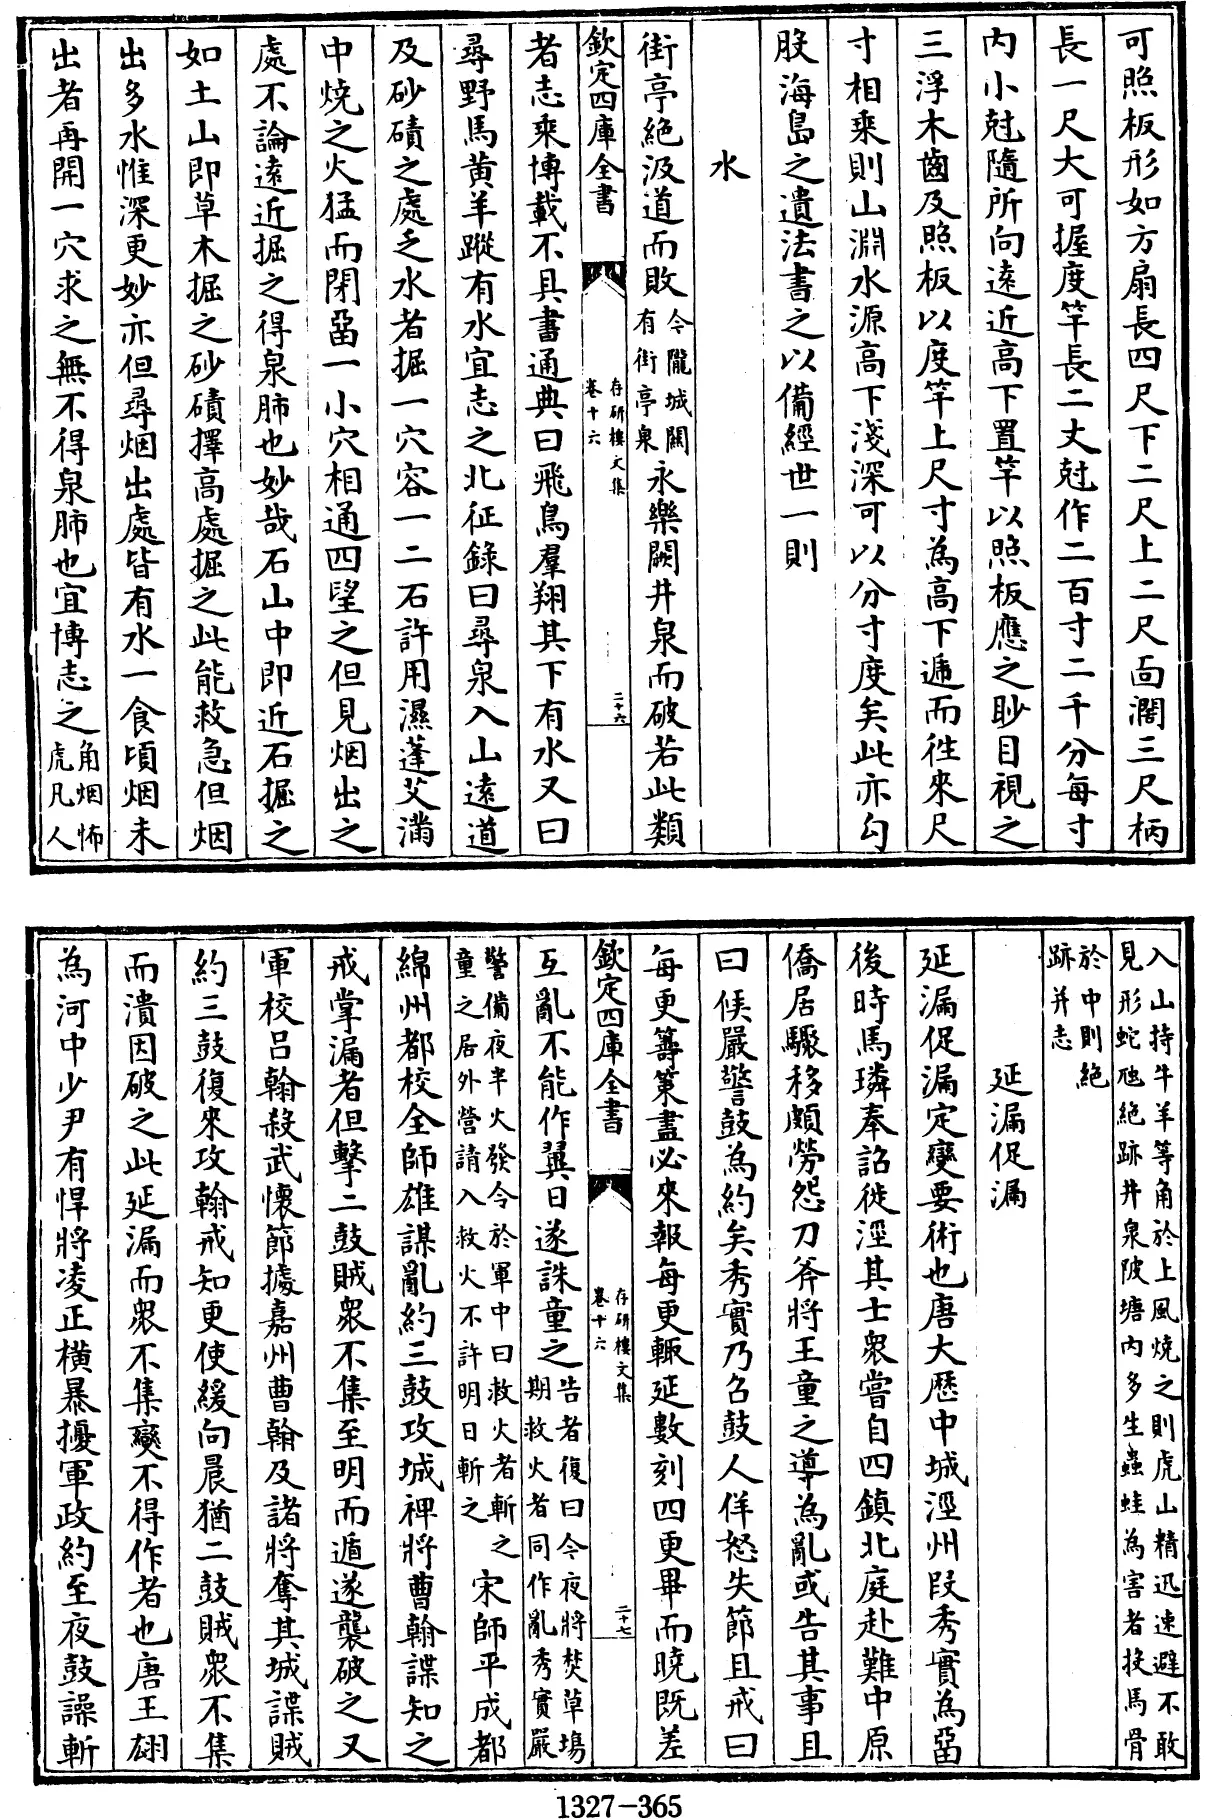 可照板形如方扇長四尺下二尺上二尺面濶三尺柄
長一尺大可握度竿長二丈尅作二百寸二千分每寸
内小尅隨所向遠近高下置竿以照板應之眇目視之
三浮木齒及照板以度竿上尺寸為高下遞而徃來尺
寸相乘則山淵水源高下淺深可以分寸度矣此亦勾
股海島之遺法書之以備經世一則
水
街亭絶汲道而敗今隴城關有街亭泉永樂闕井泉而破若此類
欽定四庫全書
存研樓文集
卷十六
二十六
者志乘博載不具書通典曰飛鳥羣翔其下有水又曰
尋野馬黄羊蹤有水宜志之北征錄曰尋泉入山遠道
及砂磧之處乏水者掘一穴容一二石許用濕蓬艾滿
中燒之火猛而閉畱一小穴相通四望之但見烟出之
處不論遠近掘之得泉肺也妙哉石山中即近石掘之
如土山即草木掘之砂磧擇高處掘之此能救急但烟
出多水惟深更妙亦但尋烟出處皆有水一食頃烟未
出者再開一穴求之無不得泉肺也宜博志之角烟怖虎凡人
入山持牛羊等角於上風燒之則虎山精迅速避不敢
見形蛇虺絶跡井泉陂塘内多生蟲蛙為害者投馬骨
於中則絶
跡并志
延漏促漏
延漏促漏定變要術也唐大歴中城涇州段秀實為畱
後時馬璘奉詔徙涇其士衆嘗自四鎮北庭赴難中原
僑居驟移頗勞怨刀斧將王童之導為亂或告其事且
曰候嚴警鼓為約矣秀實乃召鼓人佯怒失節且戒曰
每更籌䇿盡必來報每更輒延數刻四更畢而曉既差
欽定四庫全書
存研樓文集
卷十六
二十七
互亂不能作翼日遂誅童之告者復曰今夜將焚草場期救火者同作亂秀實嚴
警備夜半火發令於軍中曰救火者斬之童之居外營請入救火不許明日斬之宋師平成都
綿州都校全師雄謀亂約三鼓攻城裨將曹翰諜知之
戒掌漏者但擊二鼓賊衆不集至明而遁遂襲破之又
軍校吕翰殺武懷節據嘉州曹翰及諸將奪其城諜賊
約三鼓復來攻翰戒知更使緩向晨猶二鼓賊衆不集
而潰因破之此延漏而衆不集變不得作者也唐王翃
為河中少尹有悍將凌正横暴擾軍政約至夜鼓譟斬
1327-365